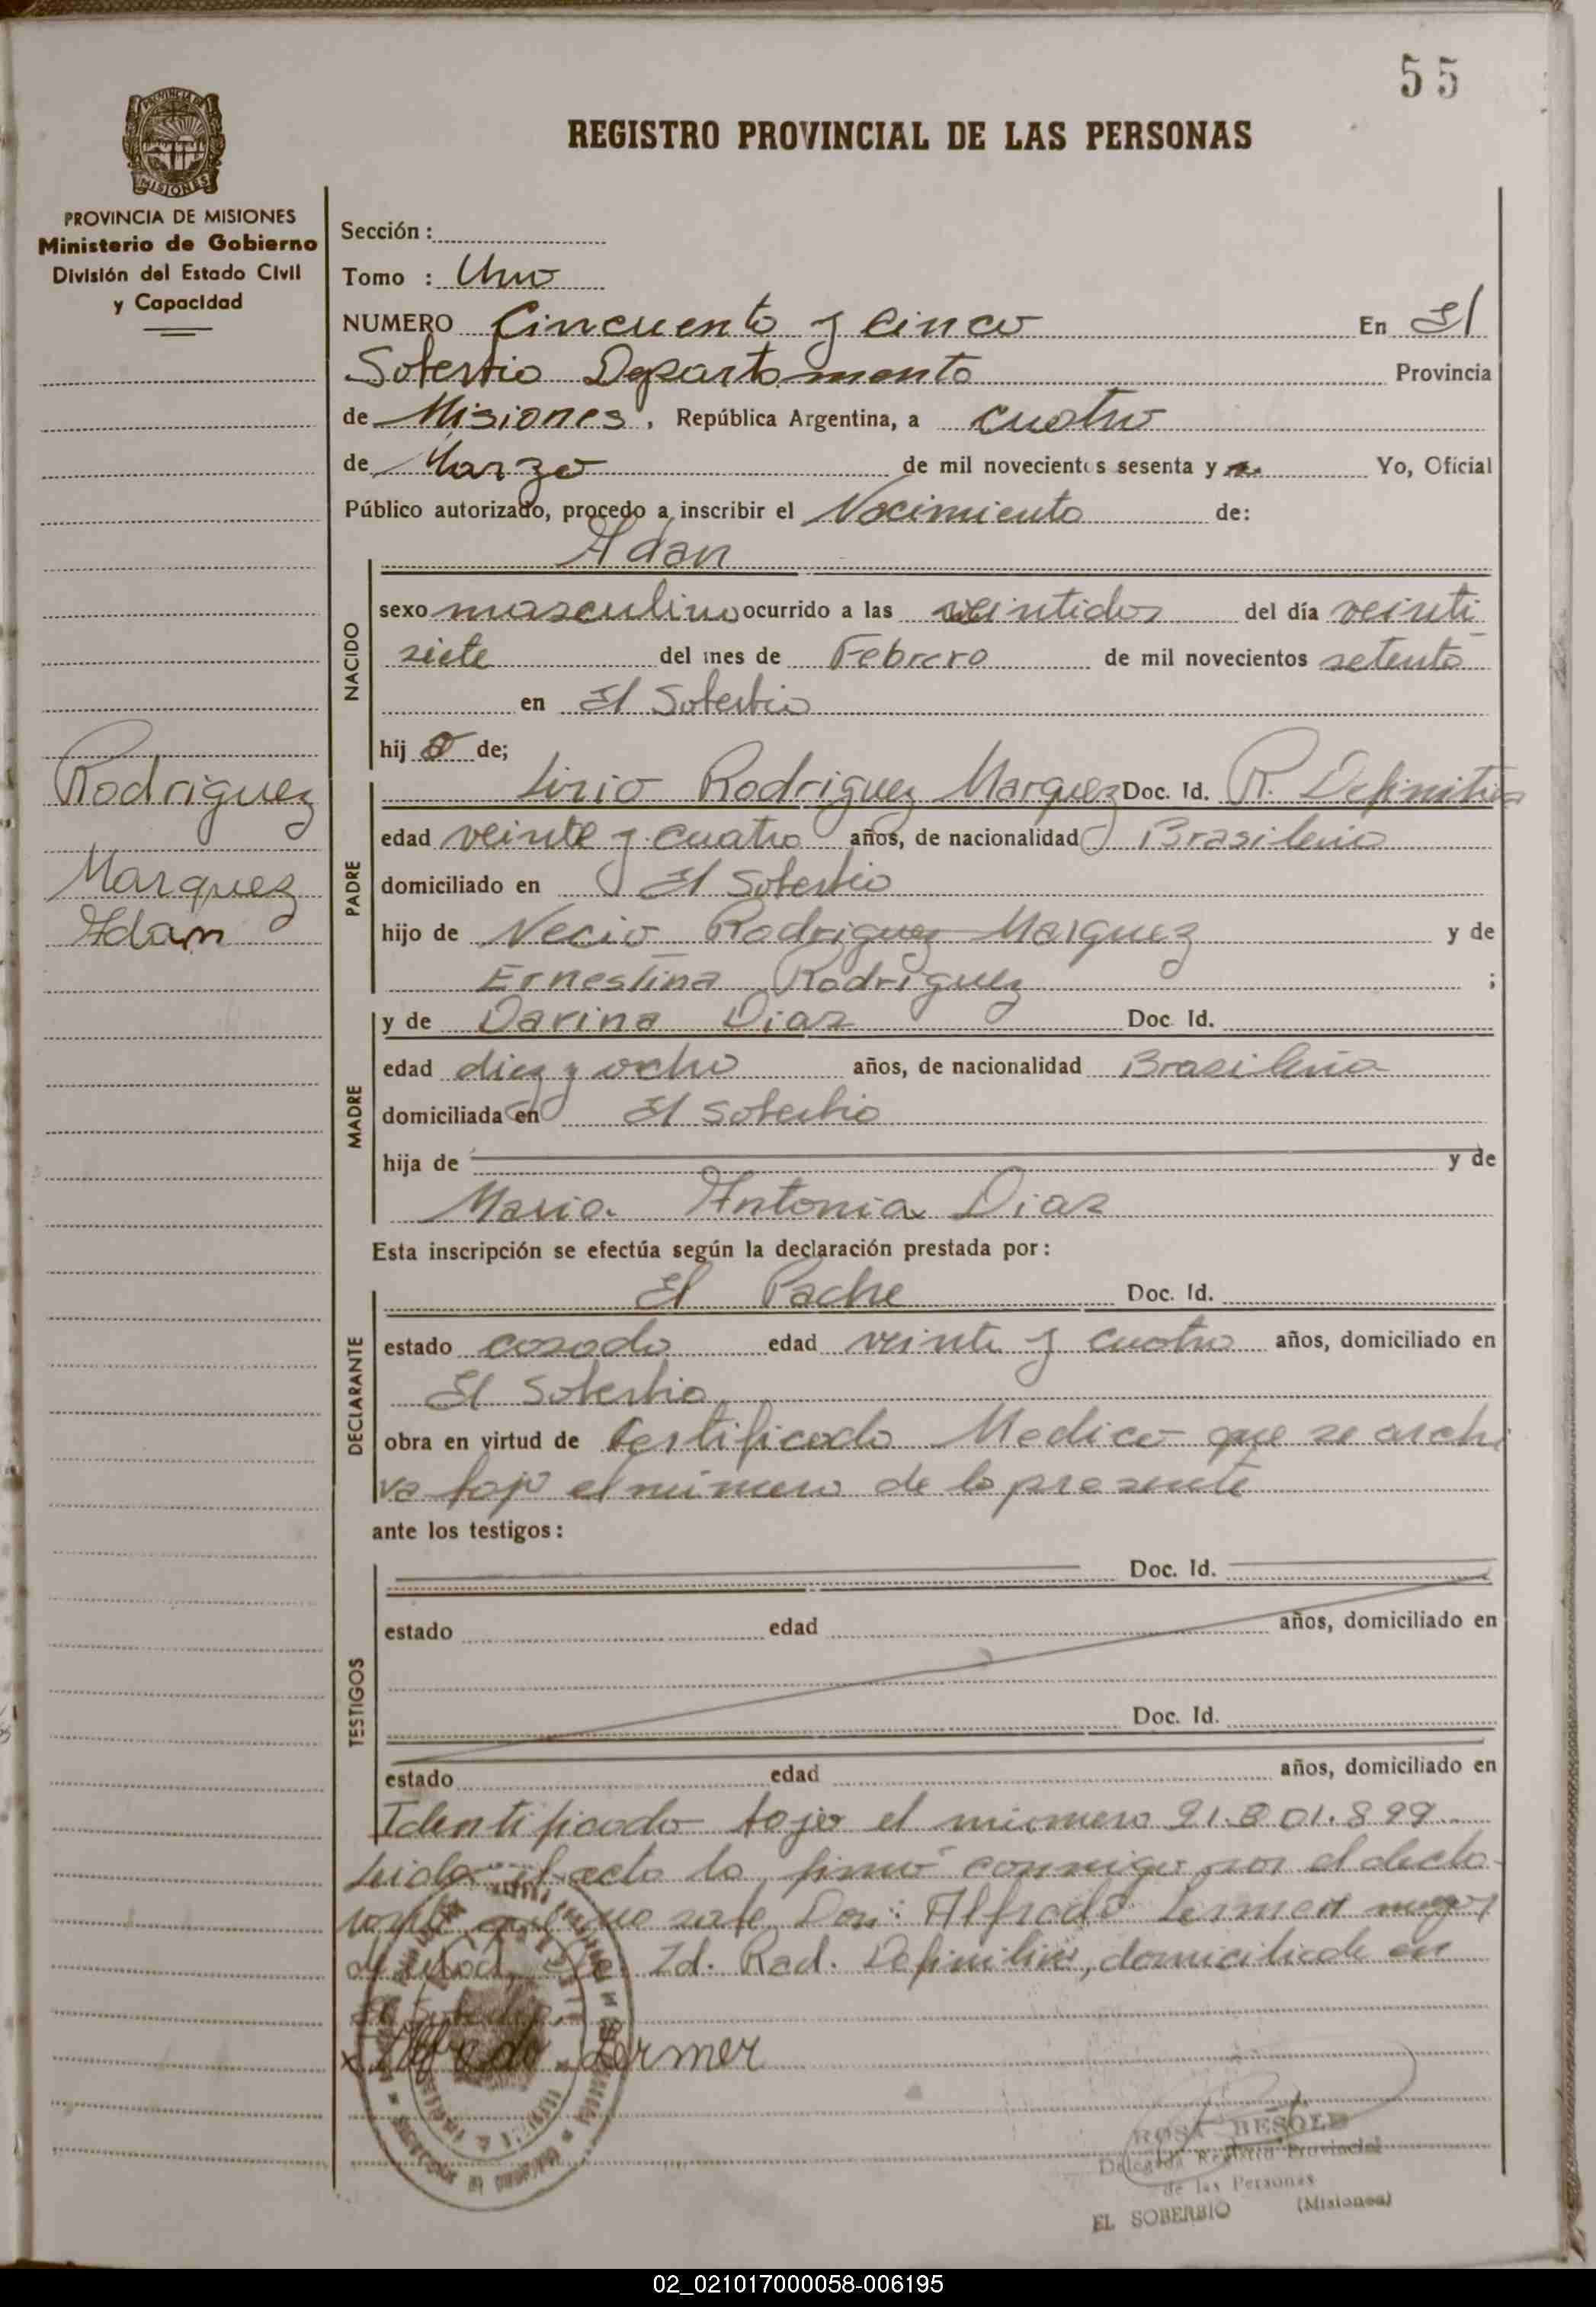 55
REGISTRO PROVINCIAL DE LAS PERSONAS
PROVINCIA DE MISIONES
Ministerio de Gobierno
División del Estado Civil
y Capacidad
Sección :
Tomo : Uno
NUMERO Cincuenta y cinco En El
Soberbio Departamento Provincia
de Misiones, República Argentina, a cuatro
de Marzo de mil novecientos sesenta y Yo, Oficial
Público autorizado, procedo a inscribir el Nacimiento de:
NACIDO
Adan
sexo masculino ocurrido a las veintidos del día veinti
siete del mes de Febrero de mil novecientos setenta
en El Soberbio
hijo de;
Rodriguez
Marquez
Adan
PADRE
Lirio Rodriguez Marquez Doc. Id. R. Definitiva
edad veinte y cuatro años, de nacionalidad Brasileña
domiciliado en El Soberbio
hijo de Necio Rodriguez Marquez y de
Ernestina Rodriguez ;
MADRE
y de Darina Diaz Doc. Id.
edad diez y ocho años, de nacionalidad Brasileña
domiciliada en El Soberbio
hija de y de
Maria Antonia Diaz
Esta inscripción se efectúa según la declaración prestada por :
DECLARANTE
El Padre Doc. Id.
estado casado edad veinte y cuatro años, domiciliado en
El Soberbio
obra en virtud de Certificado Medico que se archi
va bajo el número de la presente
ante los testigos :
TESTIGOS
Doc. Id.
estado edad años, domiciliado en
Doc. Id.
estado edad años, domiciliado en
Identificado bajo el número 21.801.899
Leida el acta la firmó conmigo por el decla
que no sabe Don: Alfredo Lermer mayor
de edad, Doc. Id. Rad. Definitiva, domiciliado en
El Soberbio
x Alfredo Lermer
ROSA BESOLD
Delegada Registro Provincial
de las Personas
EL SOBERBIO (Misiones)
02_021017000058-006195